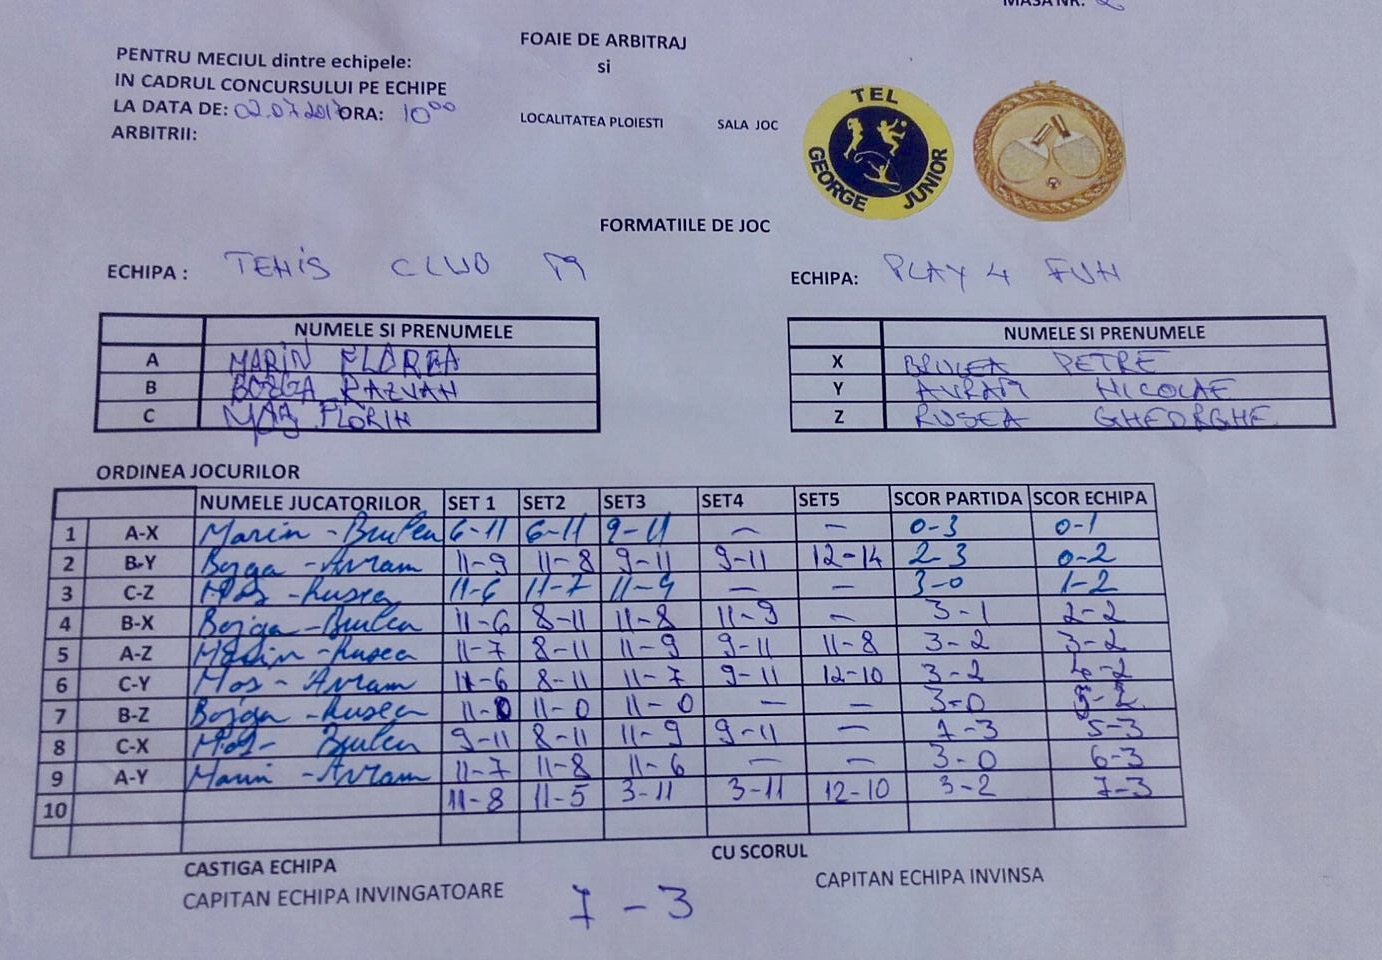 MASA NR. 2
FOAIE DE ARBITRAJ
PENTRU MECIUL dintre echipele: si
IN CADRUL CONCURSULUI PE ECHIPE
LA DATA DE: 02.07.2017 ORA: 10⁰⁰ LOCALITATEA PLOIESTI SALA JOC
ARBITRII:
TEL
GEORGE JUNIOR
FORMATIILE DE JOC
ECHIPA : TENIS CLUB ECHIPA: PLAY 4 FUN
NUMELE SI PRENUMELE NUMELE SI PRENUMELE
A MARIN FLOREA X BRULEA PETRE
B BOJGA RAZVAN Y AVRAM NICOLAE
C MOS FLORIN Z RUSEA GHEORGHE
ORDINEA JOCURILOR
NUMELE JUCATORILOR SET 1 SET2 SET3 SET4 SET5 SCOR PARTIDA SCOR ECHIPA
1 A-X Marin - Brulea 6-11 6-11 9-11 - - 0-3 0-1
2 B-Y Bojga - Avram 11-9 11-8 9-11 9-11 12-14 2-3 0-2
3 C-Z Mos - Rusea 11-6 11-7 11-9 - - 3-0 1-2
4 B-X Bojga - Brulea 11-6 8-11 11-8 11-9 - 3-1 2-2
5 A-Z Marin - Rusea 11-7 8-11 11-9 9-11 11-8 3-2 3-2
6 C-Y Mos - Avram 11-6 8-11 11-7 9-11 12-10 3-2 4-2
7 B-Z Bojga - Rusea 11-0 11-0 11-0 - - 3-0 5-2
8 C-X Mos - Brulea 9-11 8-11 11-9 9-11 - 1-3 5-3
9 A-Y Marin - Avram 11-7 11-8 11-6 - - 3-0 6-3
10 11-8 11-5 3-11 3-11 12-10 3-2 7-3
CASTIGA ECHIPA CU SCORUL
CAPITAN ECHIPA INVINGATOARE 7-3 CAPITAN ECHIPA INVINSA